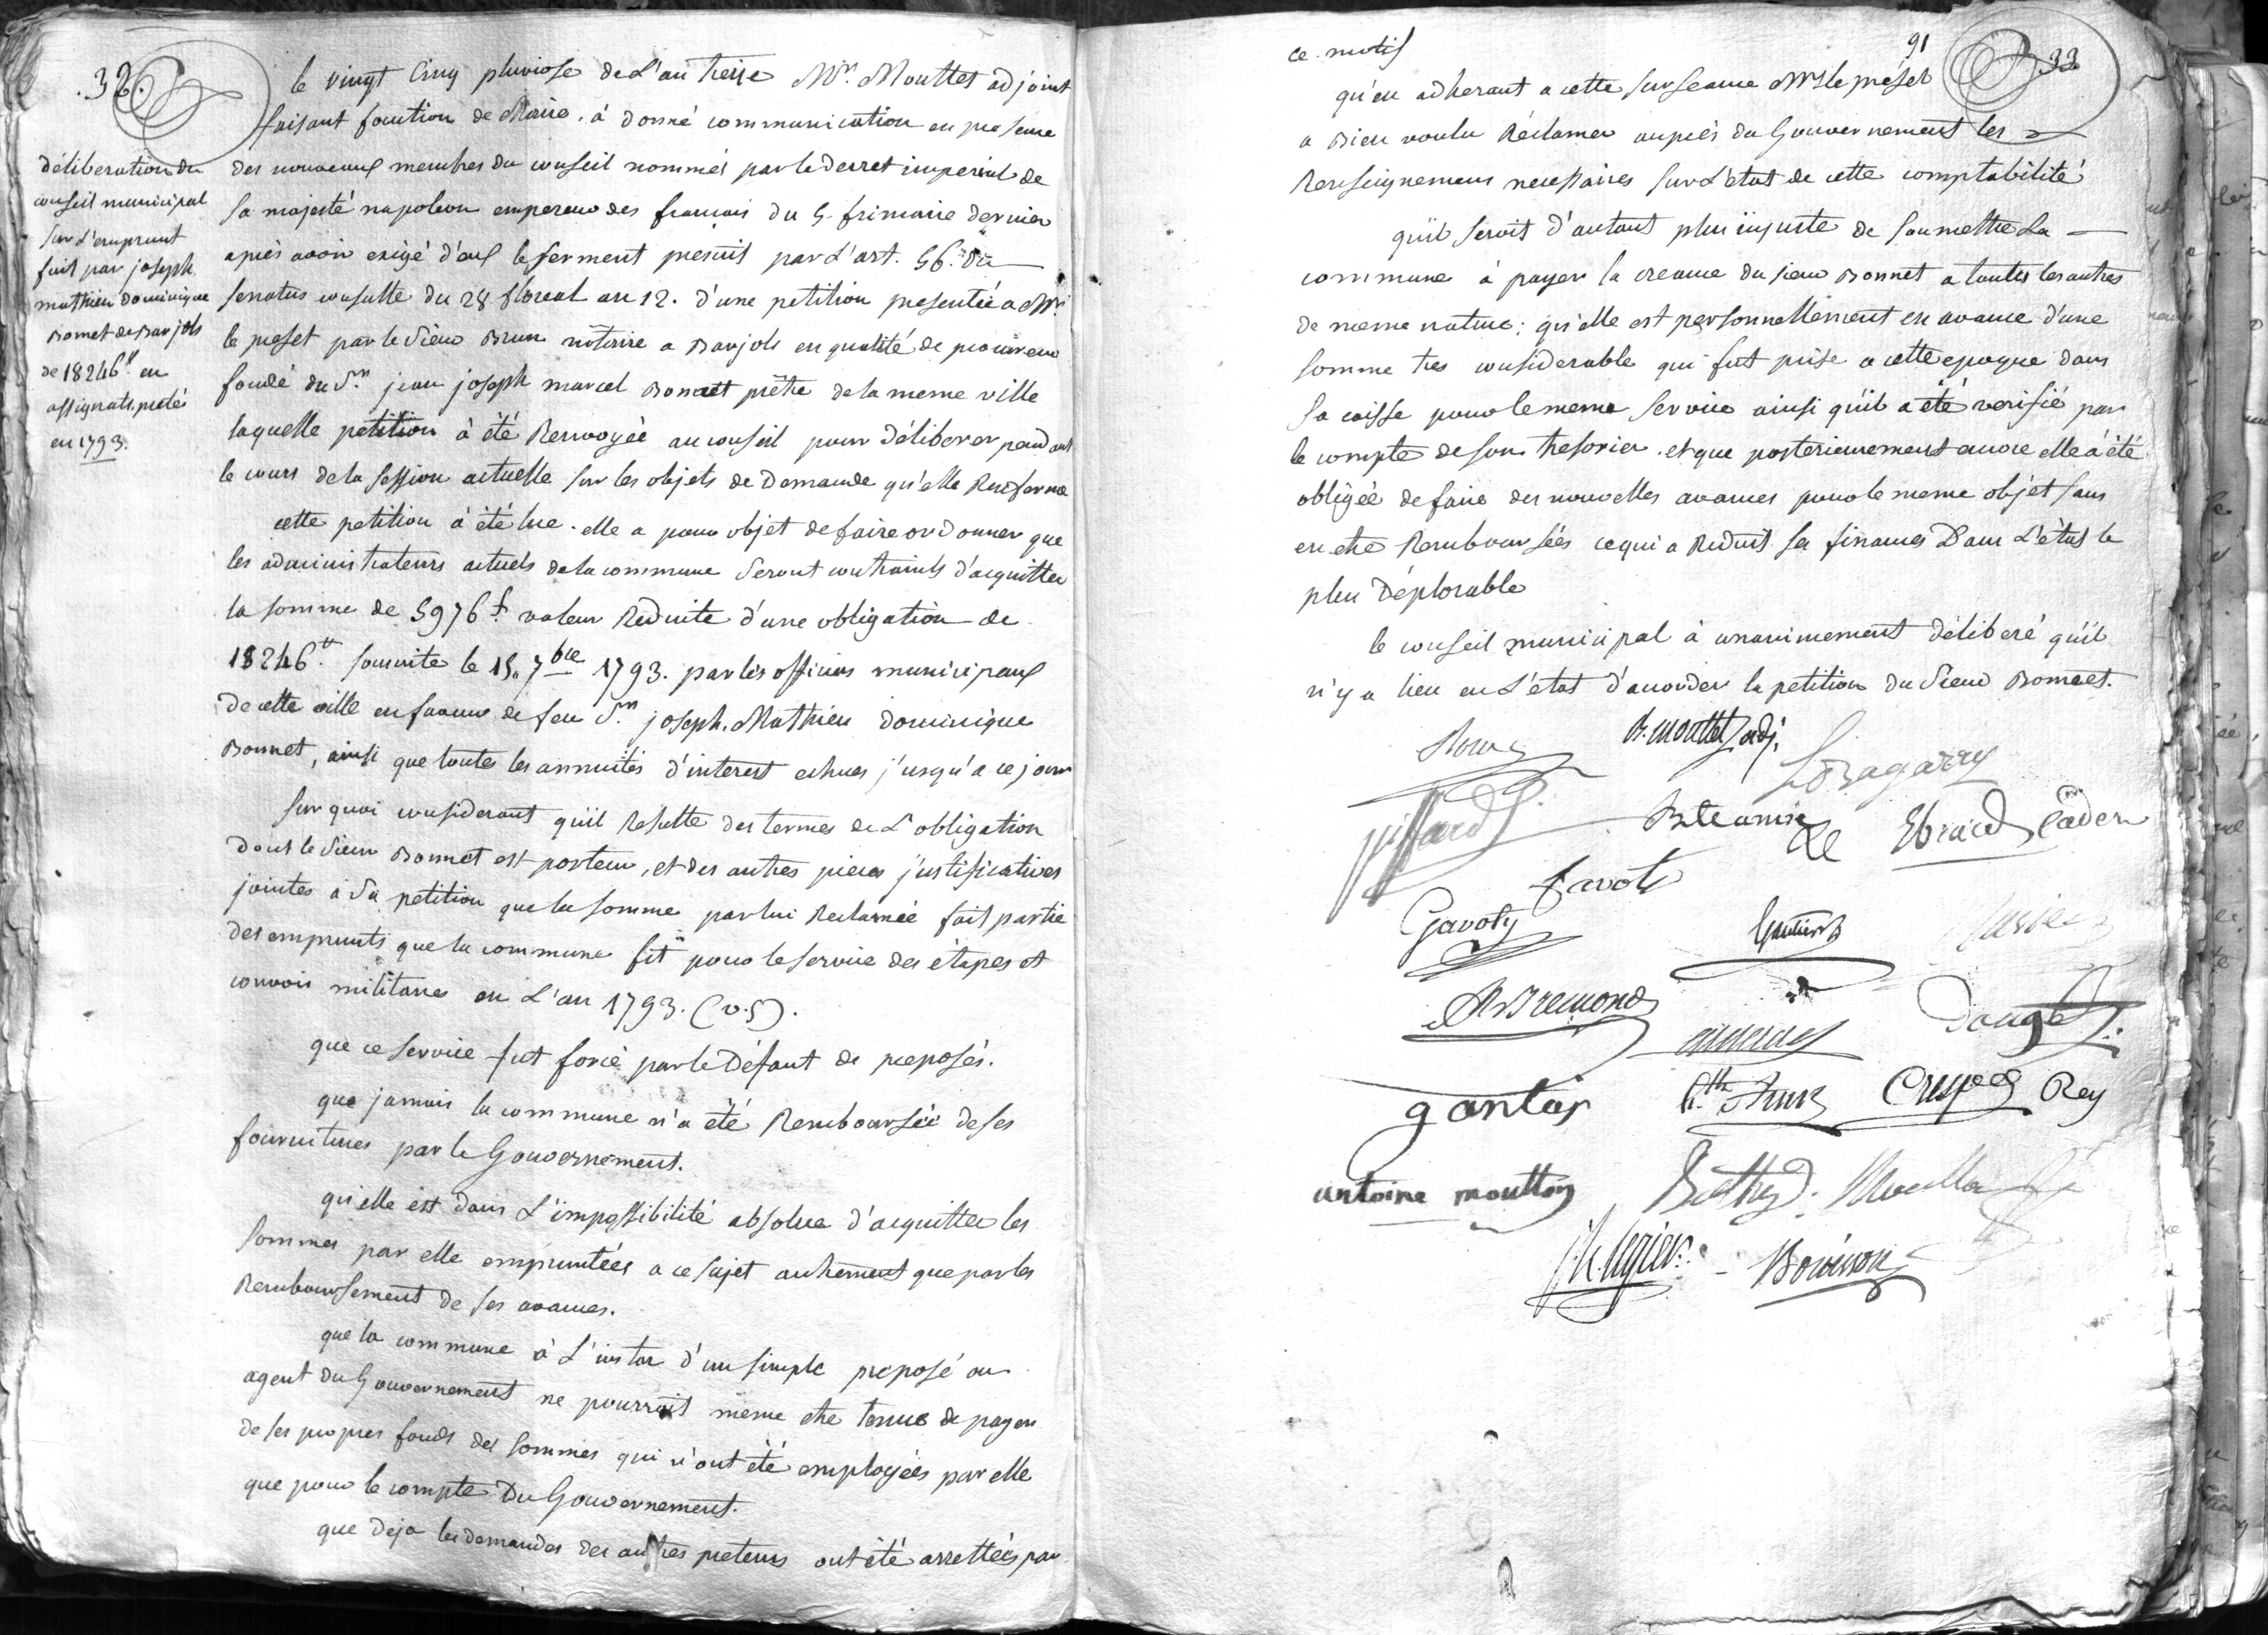 .32.
le vingt Cinq pluviose de L'an treize Mr. Mouttet adjoint
faisant fonction de Maire, à donné communication en presence
des nouveaux membres du conseil nommés par le decret imperial de
sa majesté napoleon empereur des francais du 5 frimaire dernier
après avoir exigé d'eux le serment prescrit par L'art. 56. du
senatus consulte du 28 floreal an 12. d'une petition presentée a Mr.
le prefet par le Sieur Brun notaire a Barjols en qualité de procureur
fondé du Sr. jean joseph marcel Bonnet prêtre de la meme ville
laquelle petition à été Renvoyée au conseil pour déliberer pendant
le cours de la session actuelle sur les objets de Demande qu'elle Renferme
déliberation du
conseil municipal
sur L'emprunt
fait par joseph
mathieu dominique
Bonnet de Barjols
de 18246tt en
assignats pretés
en 1793.
cette petition à été lue. elle a pour objet de faire ordonner que
les administrateurs actuels de la commune seront contraints d'acquitter
la somme de 5976 f. valeur Reduite d'une obligation de
18246.tt souscrite le 15. 7bre 1793. par les officiers municipaux
de cette ville en faveur de feu Sr. joseph. Mathieu dominique
Bonnet, ainsi que toutes les annuités d'interest echues j'usqu'a ce jour
sur quoi considerant qu'il Resulte des termes de L'obligation
dont le Sieur Bonnet est porteur, et des autres pieces j'ustificatives
jointes à Sa petition que la somme par lui Reclamée fait partie
des emprunts que la commune fit pour le service des étapes et
convois militaires en L'an 1793. (v.s).
que ce service fut forcé par le Défaut de preposés.
que jamais la commune n'a été Remboursée de ses
fournitures par le Gouvernement.
qu'elle est dans L'impossibilité absolue d'acquitter les
sommes par elle empruntées a ce sujet autrement que par les
Remboursement de ses avances.
que la commune à L'instar d'un simple preposé ou
agent du Gouvernement ne pourroit meme etre tenue de payer
de ses propres fonds des sommes qui n'ont été employées par elle
que pour le compte Du Gouvernement.
que deja les demandes des autres preteurs ont été arrettées par
91
33
ce motif
qu'en adherant a cette surseance Mr le préfet
a Bien voulu Réclamer auprès du Gouvernement les
Renseignemens necessaires sur L'etat de cette comptabilité
qu'il seroit d'autant plus injuste de soumettre La
commune à payer la creance du sieur Bonnet a toutes les autres
de meme nature; qu'elle est personnellement en avance d'une
somme tres considerable qui fut prise a cette epoque dans
sa caisse pour le meme service ainsi qu'il a été verifié par
le compte de son tresorier. et que posterieurement encore elle à été
obligée de faire des nouvelles avances pour le meme objet sans
en etre Remboursées ce qui a Reduit ses finances Dans L'état le
plus Déplorable
le conseil municipal à unanimement déliberé qu'il
n'y a lieu en L'état d'accorder la petition du Sieur Bonnet.
B. mouttet adj.
Giffard
Ebrard Cadet
Gavoty
Gautier
Bremond
gantar
Crespel Rey
antoine moutton
Bouisson